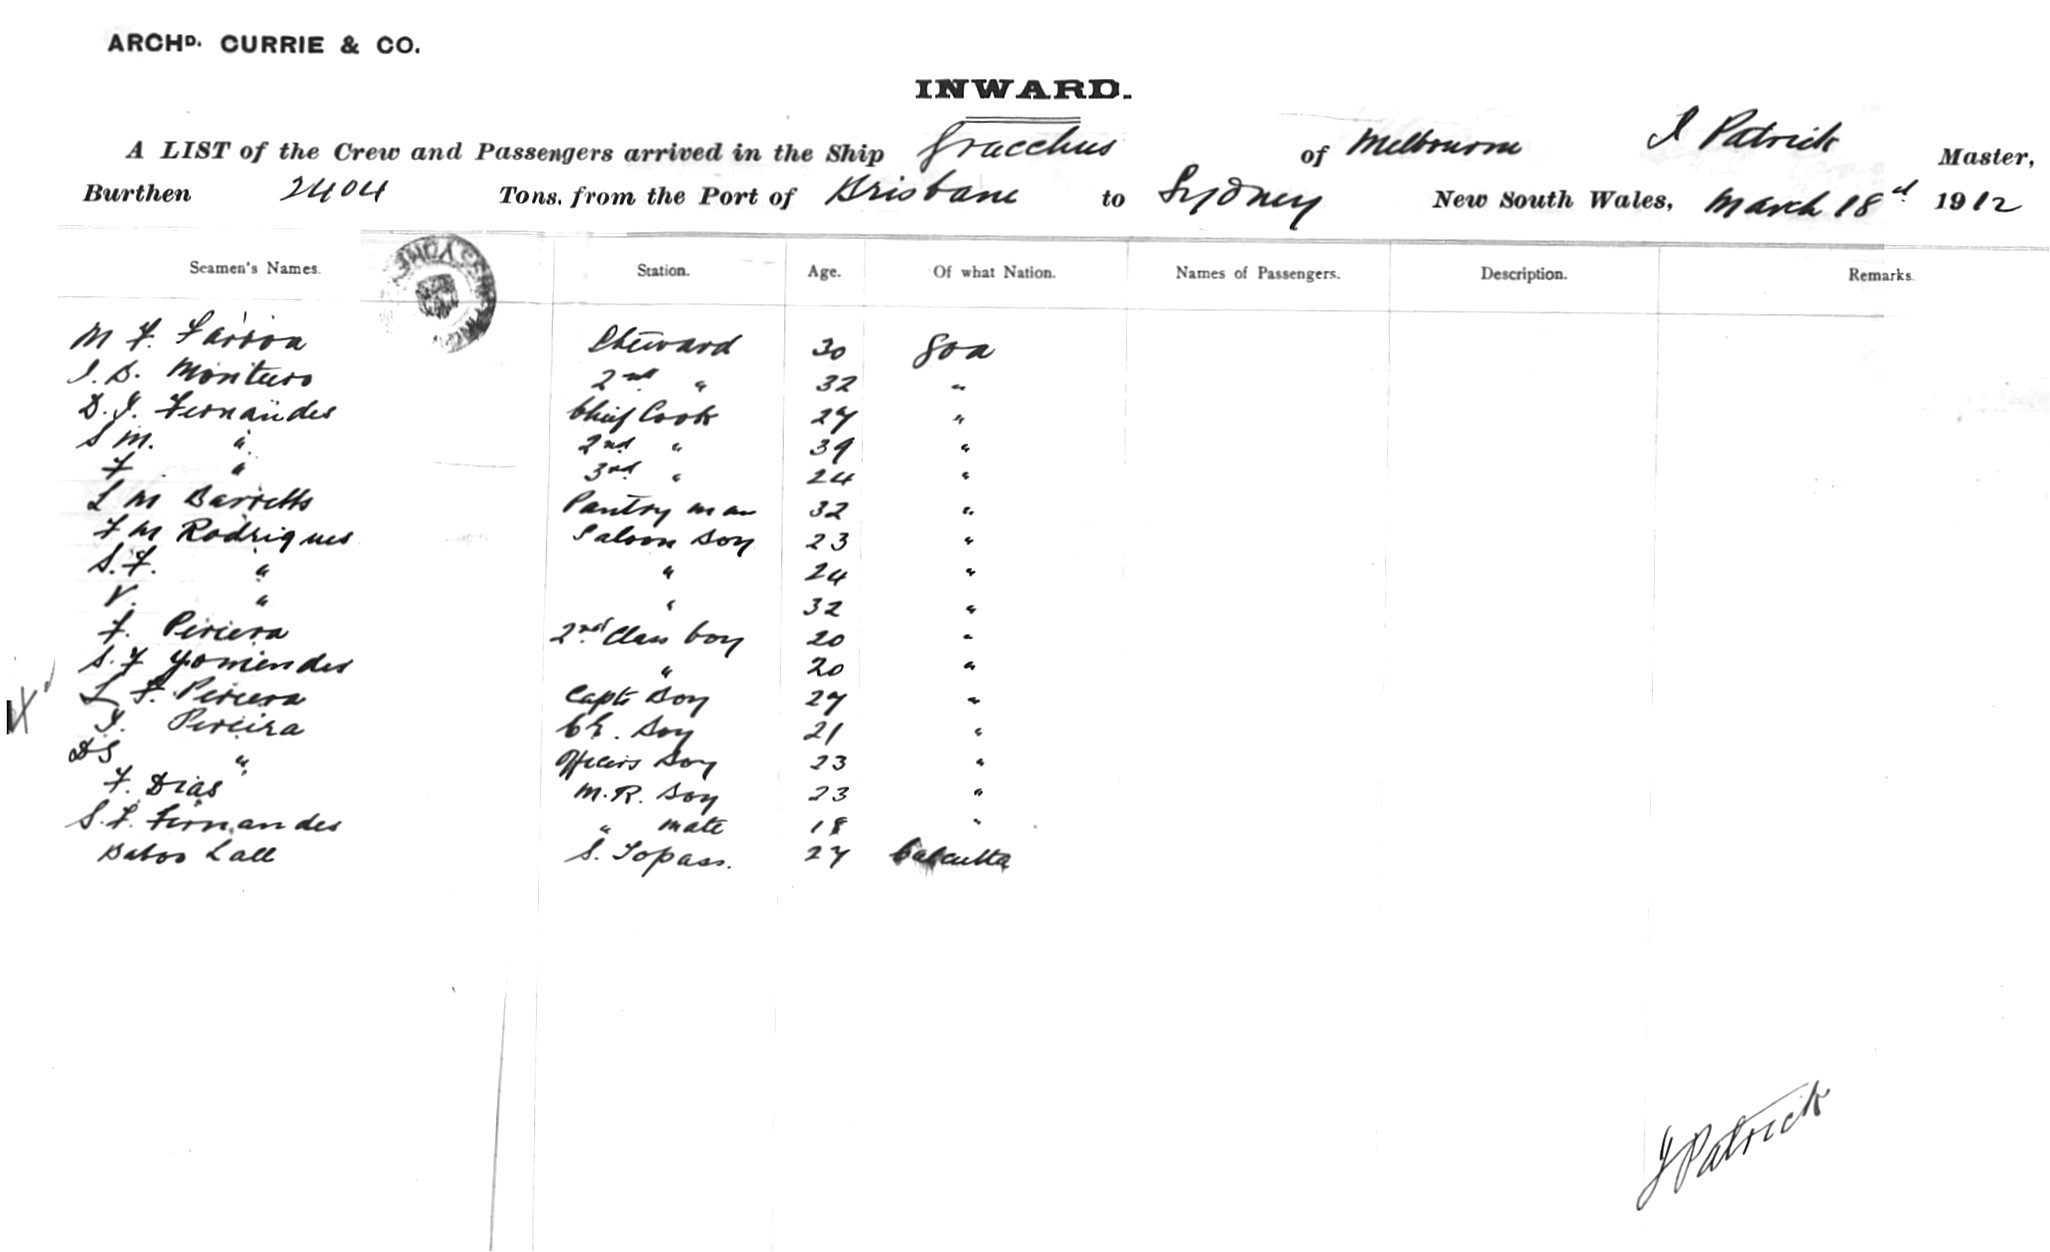 ARCHD. CURRIE & CO.
INWARD.
A LIST of the Crew and Passengers arrived in the Ship Gracchus of Melbourne J Patrick Master,
Burthen 2404 Tons, from the Port of Brisbane to Sydney New South Wales, March 18d 1912
Seamen's Names. Station. Age. Of what Nation. Names of Passengers. Description. Remarks.
M F. Steward 30 Goa
J. B. Monteiro 2nd " 32 "
D. J. Fernandes Chief Cook 27 "
S M. " 2nd " 39 "
F " 3rd " 24 "
L M Barretto Pantry man 32 "
F M Rodrigues Saloon Boy 23 "
S. F. " " 24 "
V. " " 32 "
F. Periera 2nd Class boy 20 "
S. F Gomendes " 20 "
L F. Periera Capts Boy 27 "
J. Pereira C.E. Boy 21 "
DS " Officers Boy 23 "
F. Dias M.R. Boy 23 "
S. F. Fernandes " mate 18 "
Baboo Lall S. Topass. 27 Calcutta
J Patrick